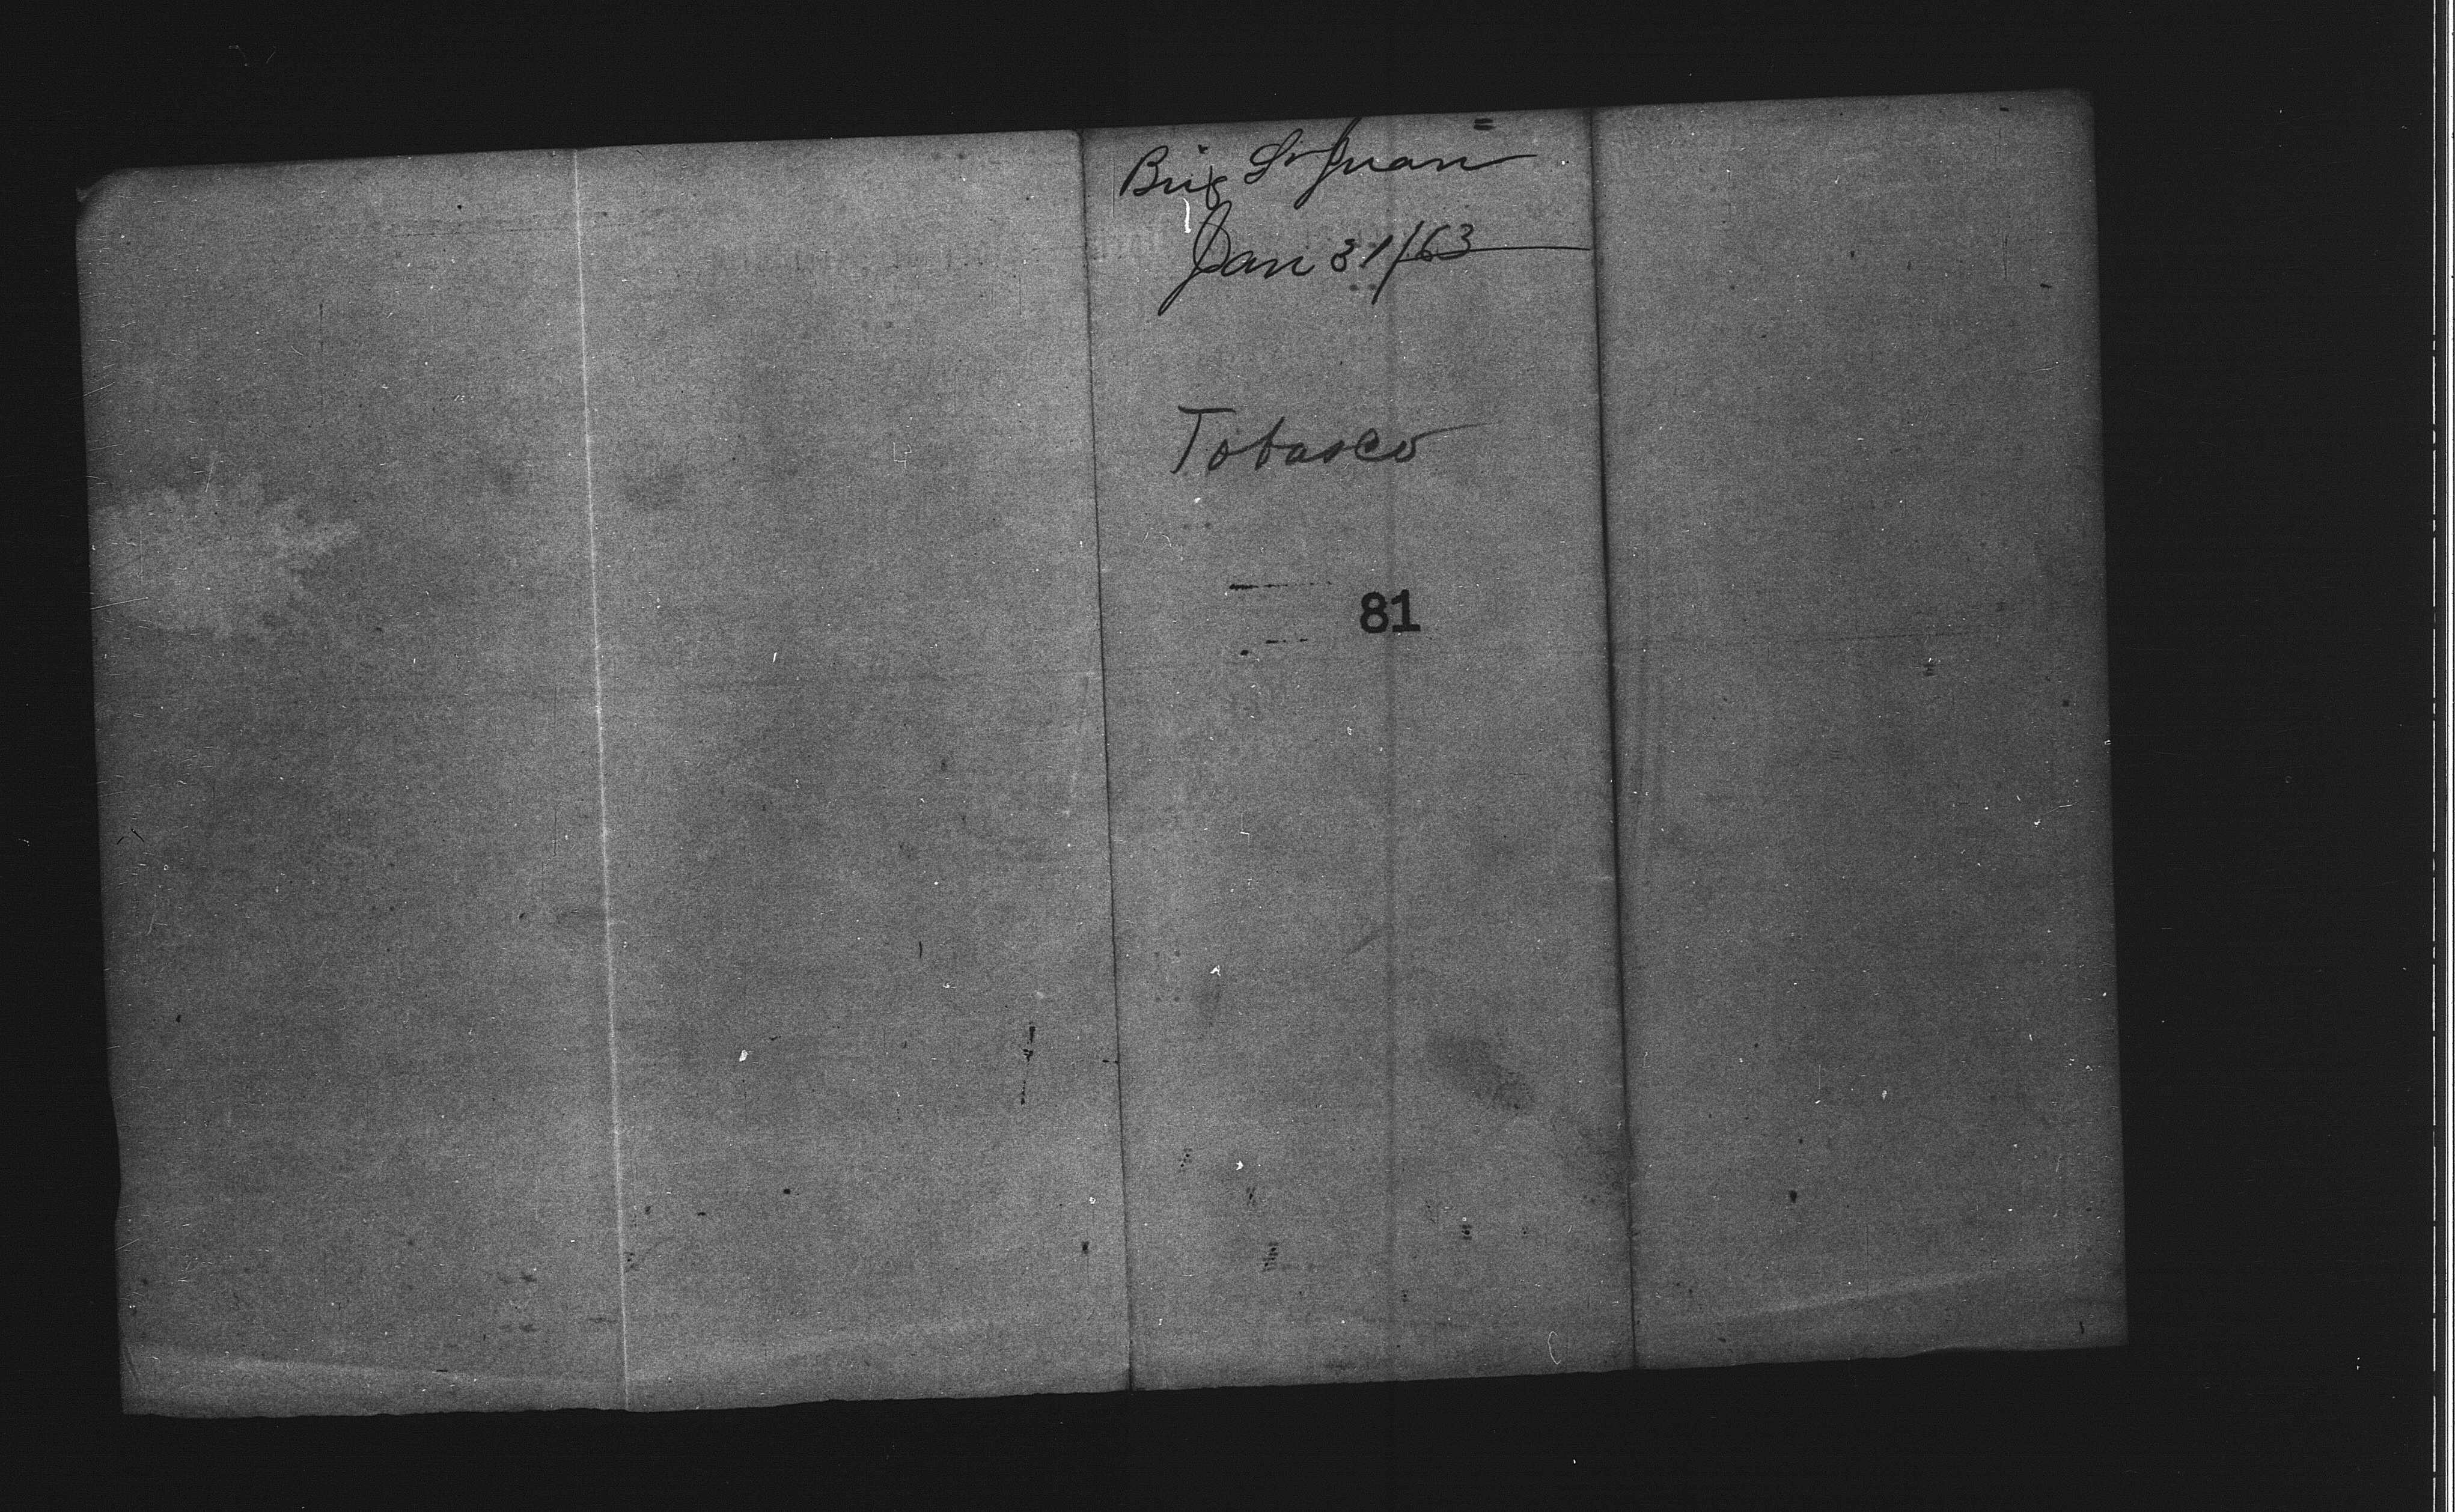 Brig Sn Juan
Jan 31/63
Tobasco
81